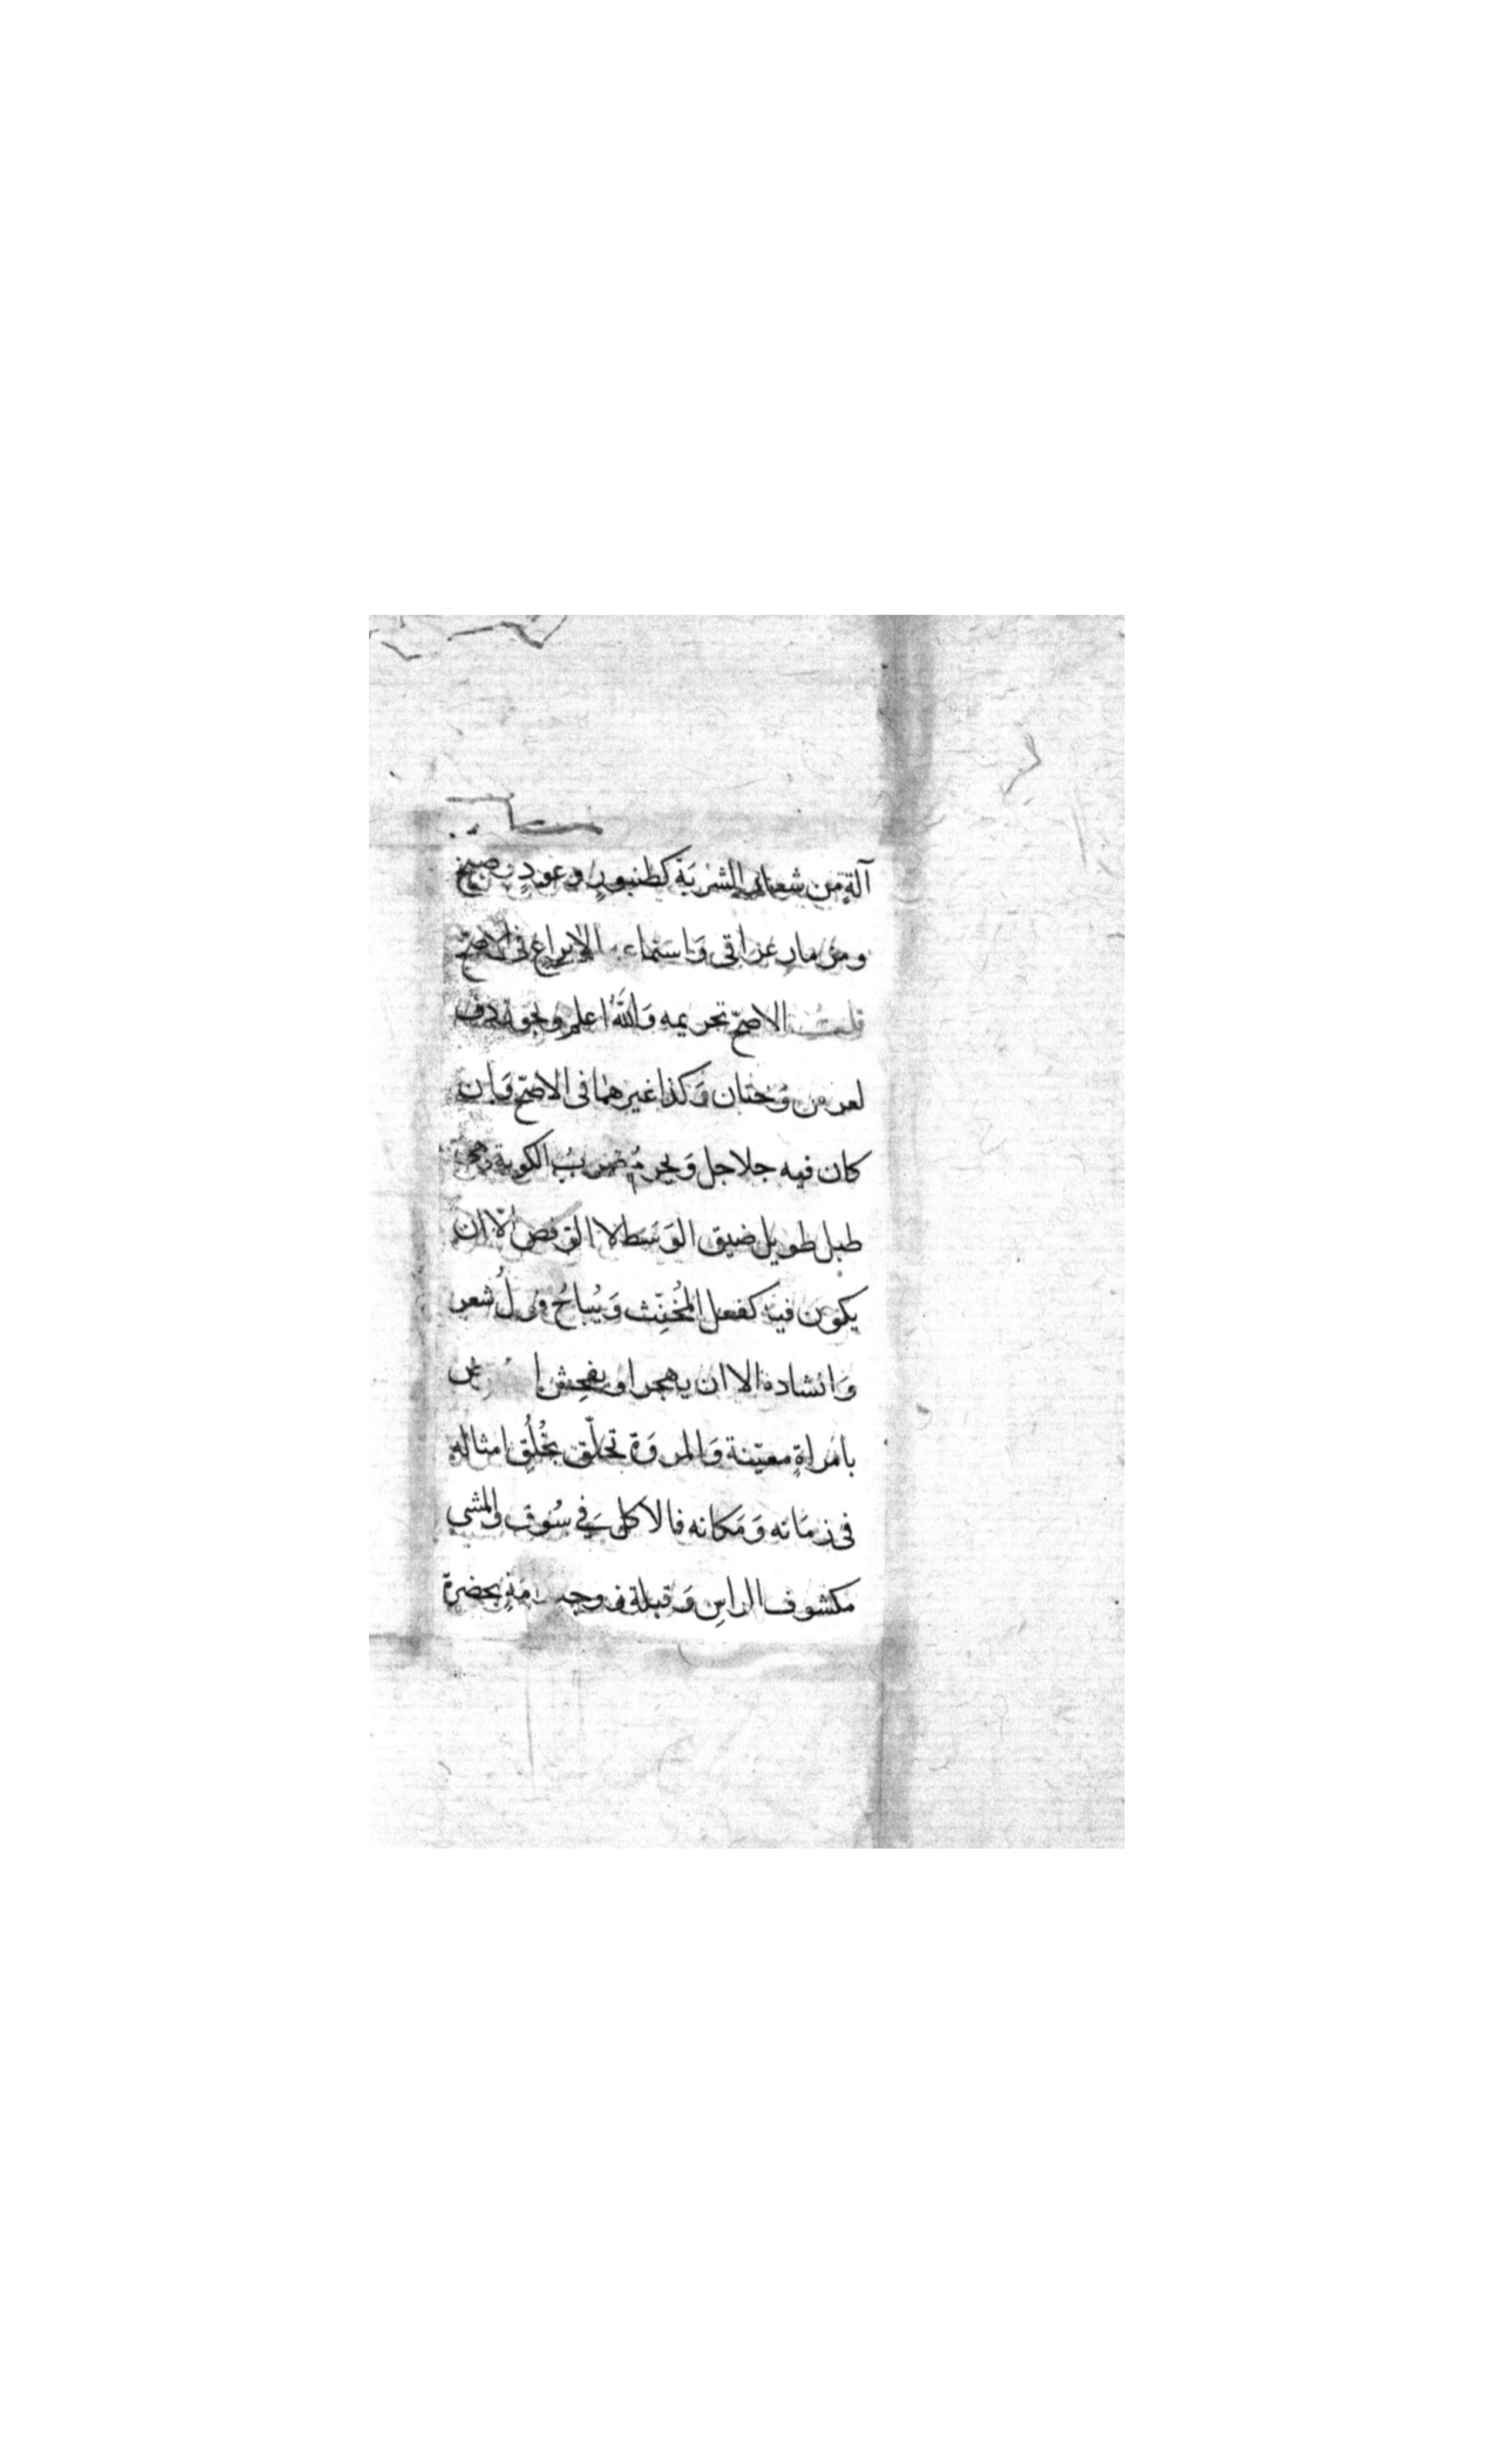 آلةٍ من شعار الشربَة كطنبورٍ وعودٍ وصنج
ومزمار عراقى وَاستماعه الايراع فى الاصحّ
قلتُ الاصحّ تحريمه وَالله اعلم ويجوز دف
لعرس وَختان وَكذا غيرهما فى الاصحّ وَان
كان فيه جلاجل وَيحرمُ ضربُ الكوبة وهى
طبل طويل ضيق الوَسَط لا الرقص الّا ان
يكون فيه كفعل المُخنِّث وَيُباحُ قولُ شعر
وَانشاده الا ان يهجر او يفحِش
بامراةٍ معيّنة وَالمروَة تخلّق بخُلُقِ امثاله
فى زمَانه وَمَكانه فالاكل فِي سُوق والمشى
مكشوف الراسِ وَقبلة زوجة امَةٍ بحضرة